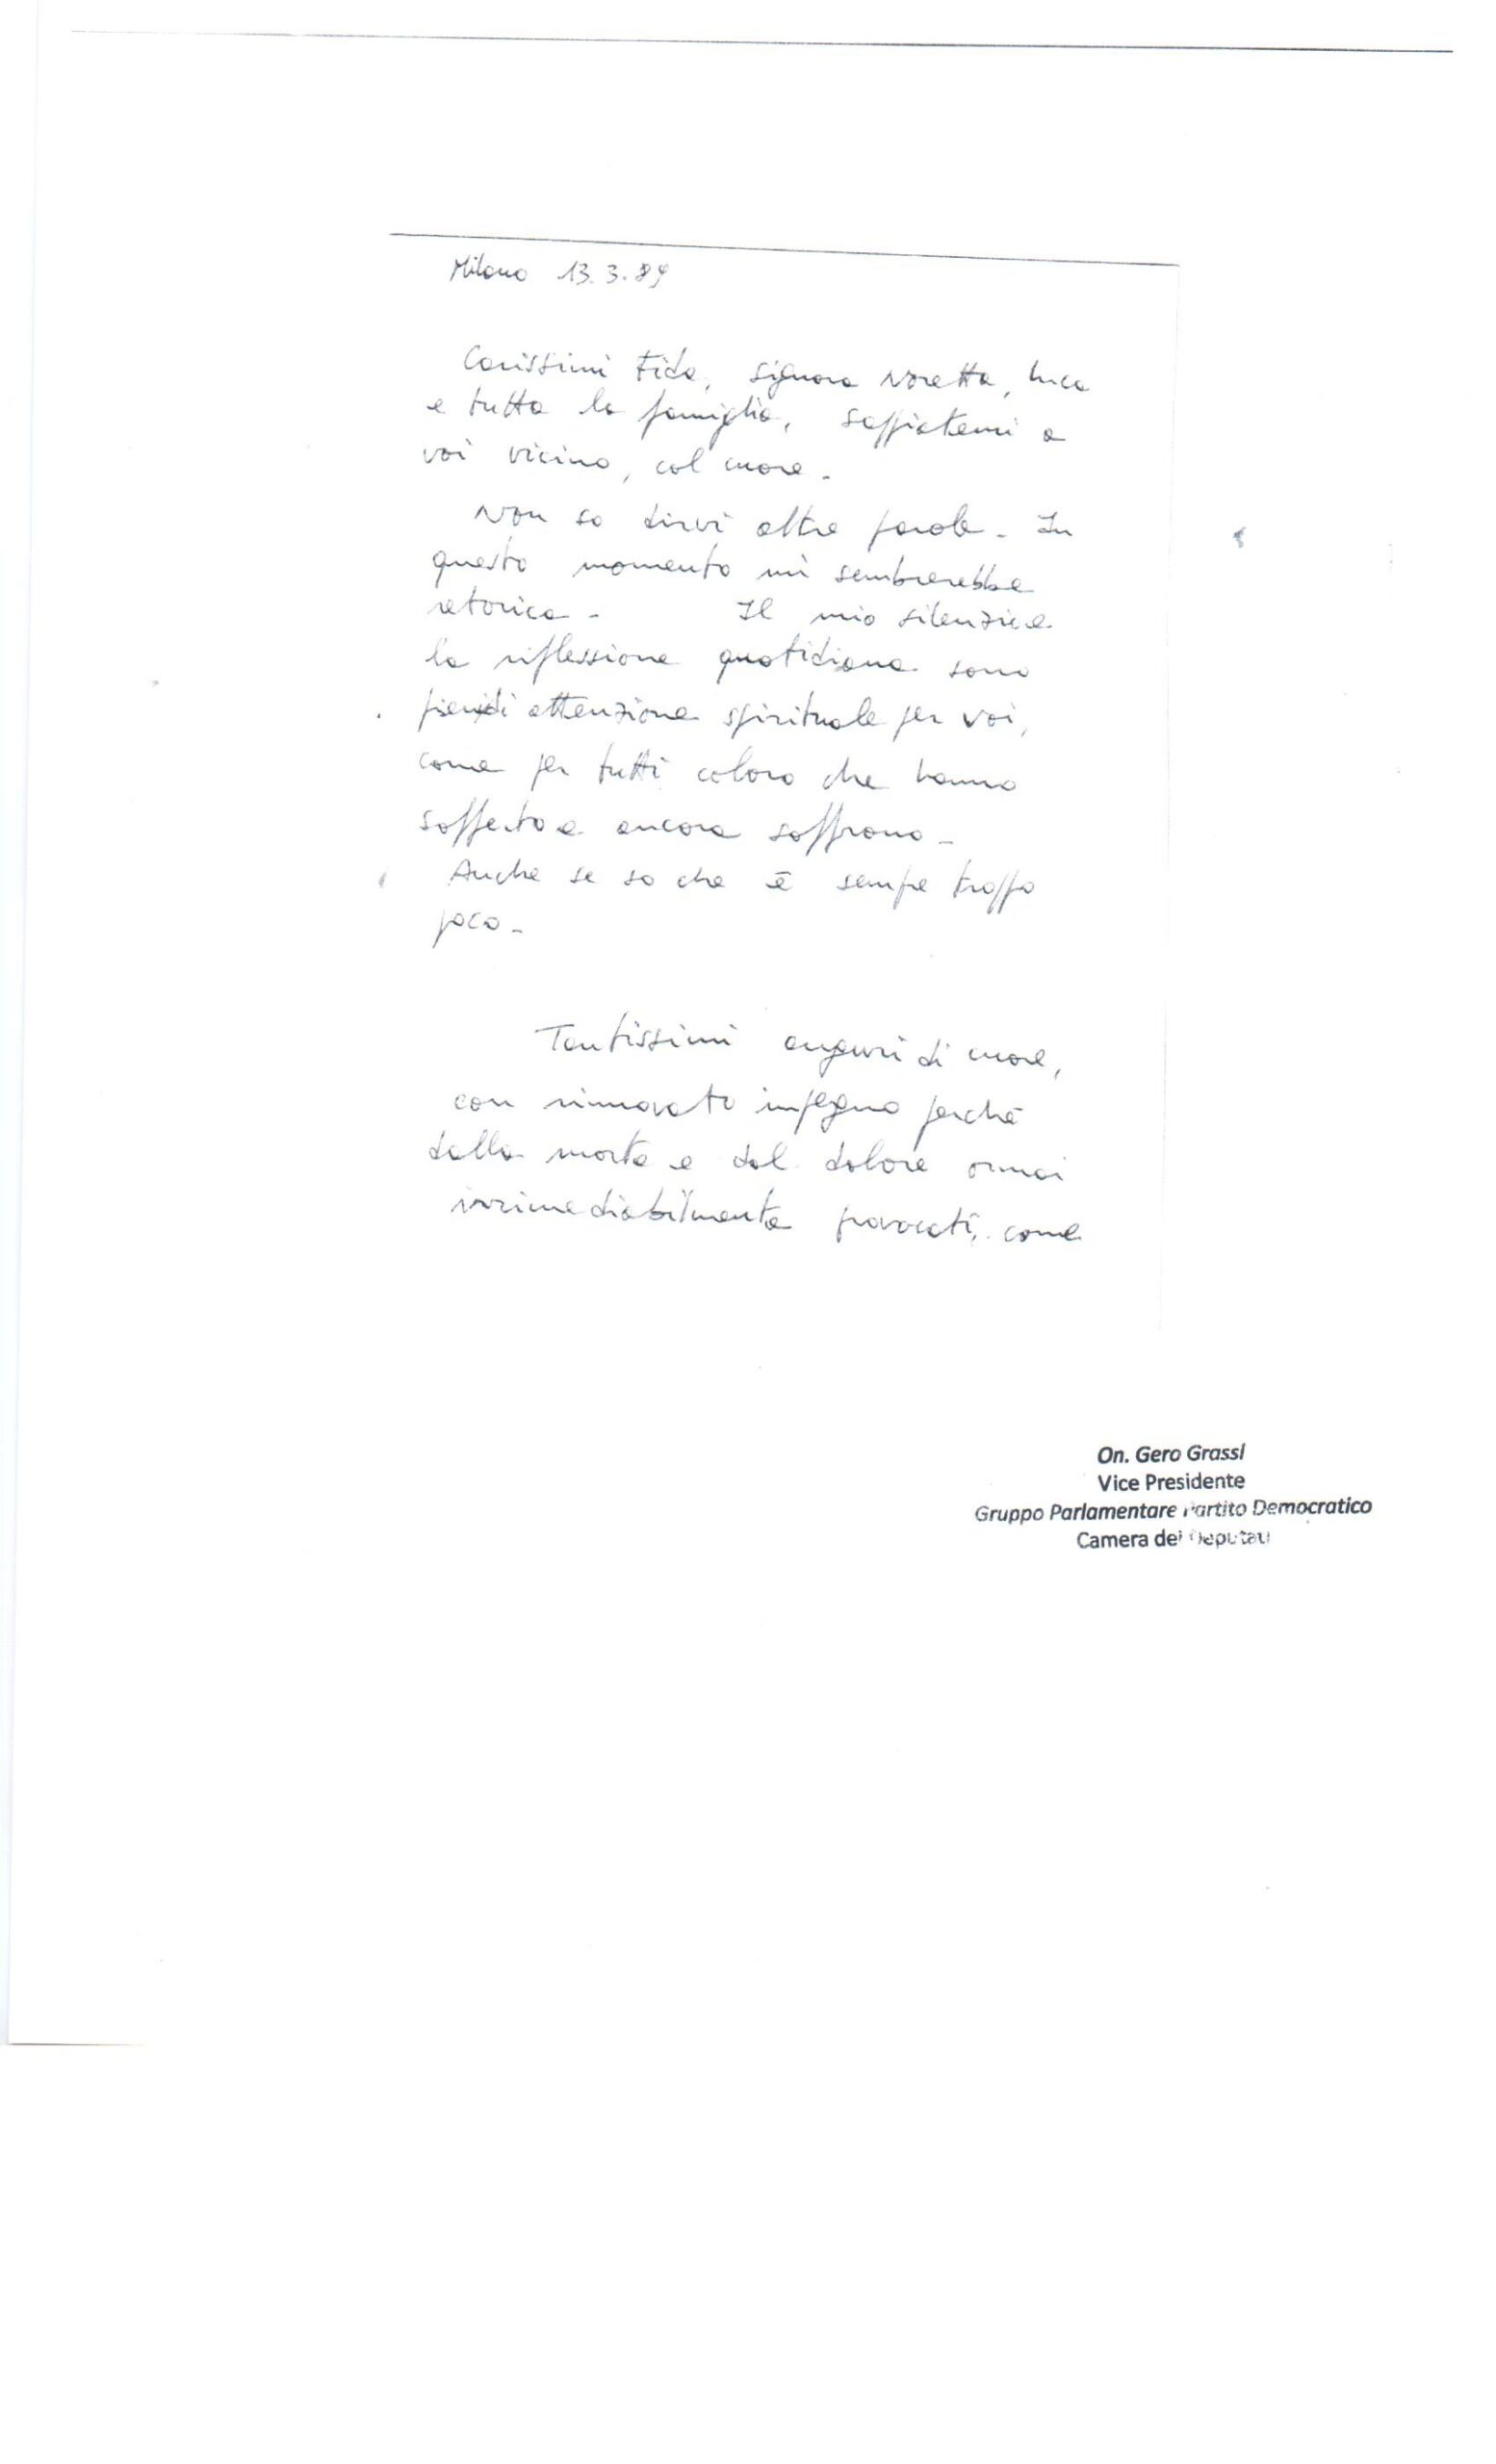 Milano 13.3.89
Carissimi Fida, signora Noretta, Luca
e tutta la famiglia, sappiatemi a
voi vicino, col cuore -
Non so dirvi altre parole - In
questo momento mi sembrerebbe
retorica - Il mio silenzio e
la riflessione quotidiana sono
pieni di attenzione spirituale per voi,
come per tutti coloro che hanno
sofferto e ancora soffrono -
Anche se so che è sempre troppo
poco -
Tantissimi auguri di cuore,
con rinnovato impegno perché
dalla morte e dal dolore ormai
irrimediabilmente provocati, come
On. Gero Grassi
Vice Presidente
Gruppo Parlamentare Partito Democratico
Camera dei Deputati